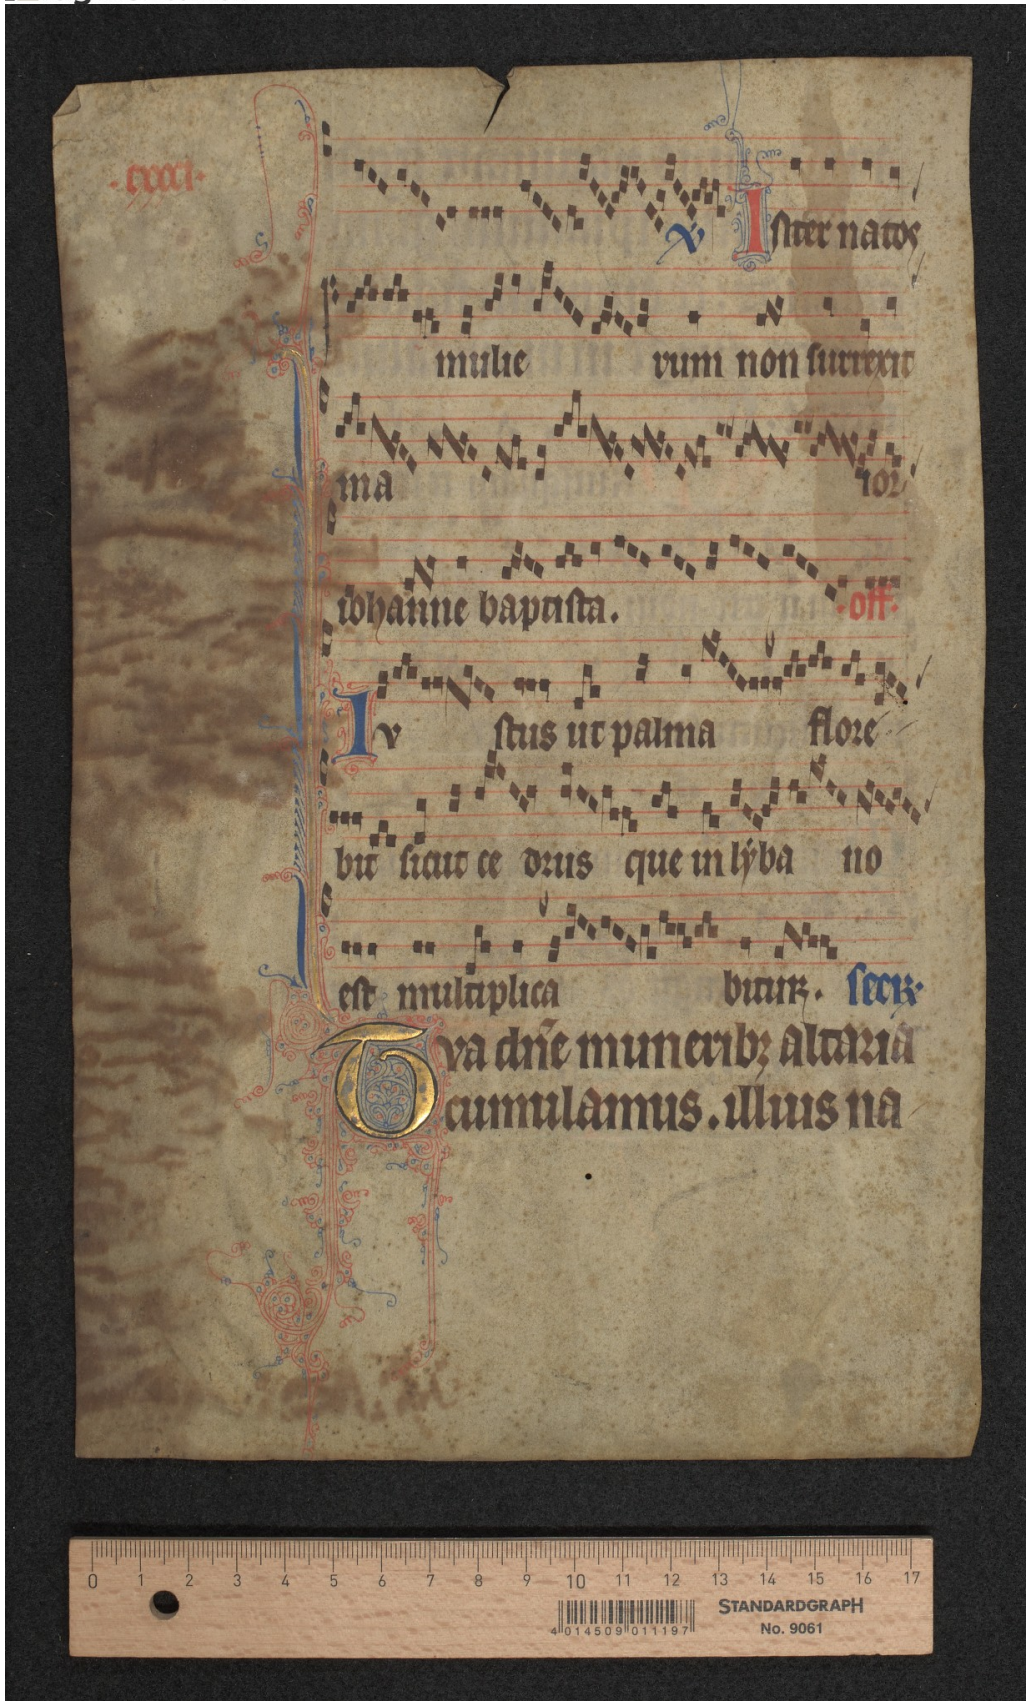 ·cxxxi·
℣ Inter natos
mulie rum non surrexit
ma ior
iohanne baptista. ·off·
Iv stus ut palma flore
bit sicut ce drus que in lyba no
est multiplica bitur. secr̄
Tva dn̄e munerib; altaria
cumulamus. illius na
0 1 2 3 4 5 6 7 8 9 10 11 12 13 14 15 16 17
STANDARDGRAPH
No. 9061
4 014509 011197